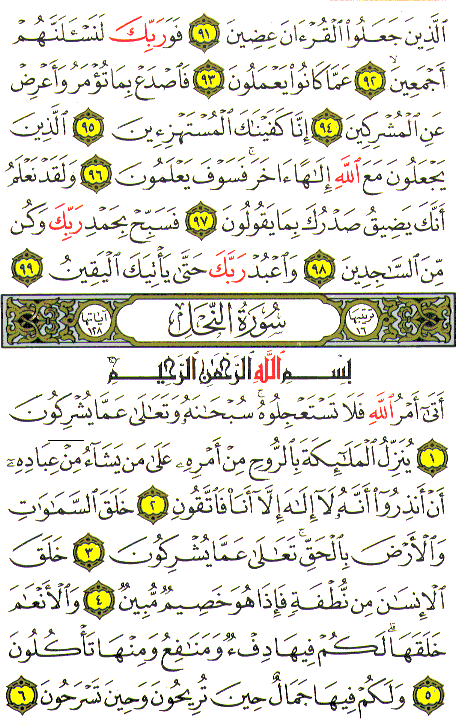 ٱلَّذِينَ جَعَلُوا۟ ٱلْقُرْءَانَ عِضِينَ ٩١ فَوَرَبِّكَ لَنَسْـَٔلَنَّهُمْ
أَجْمَعِينَ ٩٢ عَمَّا كَانُوا۟ يَعْمَلُونَ ٩٣ فَٱصْدَعْ بِمَا تُؤْمَرُ وَأَعْرِضْ
عَنِ ٱلْمُشْرِكِينَ ٩٤ إِنَّا كَفَيْنَٰكَ ٱلْمُسْتَهْزِءِينَ ٩٥ ٱلَّذِينَ
يَجْعَلُونَ مَعَ ٱللَّهِ إِلَٰهًا ءَاخَرَ ۚ فَسَوْفَ يَعْلَمُونَ ٩٦ وَلَقَدْ نَعْلَمُ
أَنَّكَ يَضِيقُ صَدْرُكَ بِمَا يَقُولُونَ ٩٧ فَسَبِّحْ بِحَمْدِ رَبِّكَ وَكُن
مِّنَ ٱلسَّٰجِدِينَ ٩٨ وَٱعْبُدْ رَبَّكَ حَتَّىٰ يَأْتِيَكَ ٱلْيَقِينُ ٩٩
ترتيبها ١٦ سُورَةُ النَّحْلِ آياتها ١٢٨
بِسْمِ ٱللَّهِ ٱلرَّحْمَٰنِ ٱلرَّحِيمِ
أَتَىٰٓ أَمْرُ ٱللَّهِ فَلَا تَسْتَعْجِلُوهُ ۚ سُبْحَٰنَهُۥ وَتَعَٰلَىٰ عَمَّا يُشْرِكُونَ
١ يُنَزِّلُ ٱلْمَلَٰٓئِكَةَ بِٱلرُّوحِ مِنْ أَمْرِهِۦ عَلَىٰ مَن يَشَآءُ مِنْ عِبَادِهِۦٓ
أَنْ أَنذِرُوٓا۟ أَنَّهُۥ لَآ إِلَٰهَ إِلَّآ أَنَا۠ فَٱتَّقُونِ ٢ خَلَقَ ٱلسَّمَٰوَٰتِ
وَٱلْأَرْضَ بِٱلْحَقِّ ۚ تَعَٰلَىٰ عَمَّا يُشْرِكُونَ ٣ خَلَقَ
ٱلْإِنسَٰنَ مِن نُّطْفَةٍ فَإِذَا هُوَ خَصِيمٌ مُّبِينٌ ٤ وَٱلْأَنْعَٰمَ
خَلَقَهَا ۗ لَكُمْ فِيهَا دِفْءٌ وَمَنَٰفِعُ وَمِنْهَا تَأْكُلُونَ
٥ وَلَكُمْ فِيهَا جَمَالٌ حِينَ تُرِيحُونَ وَحِينَ تَسْرَحُونَ ٦